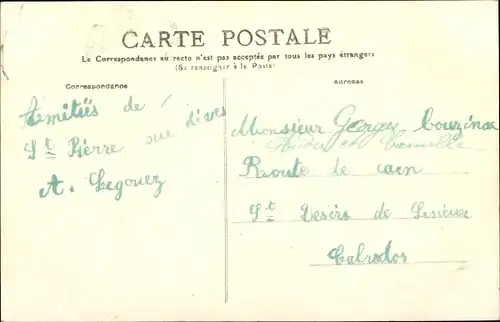 CARTE POSTALE
La Correspondance au recto n'est pas acceptée par tous les pays étrangers
(Se renseigner à la Poste)
Correspondance
Adresse
Amitiés de
St Pierre sur dives
A. Legouez
Monsieur Georges
et famille
Route de caen
St Desirs de Lisieux
Calvados